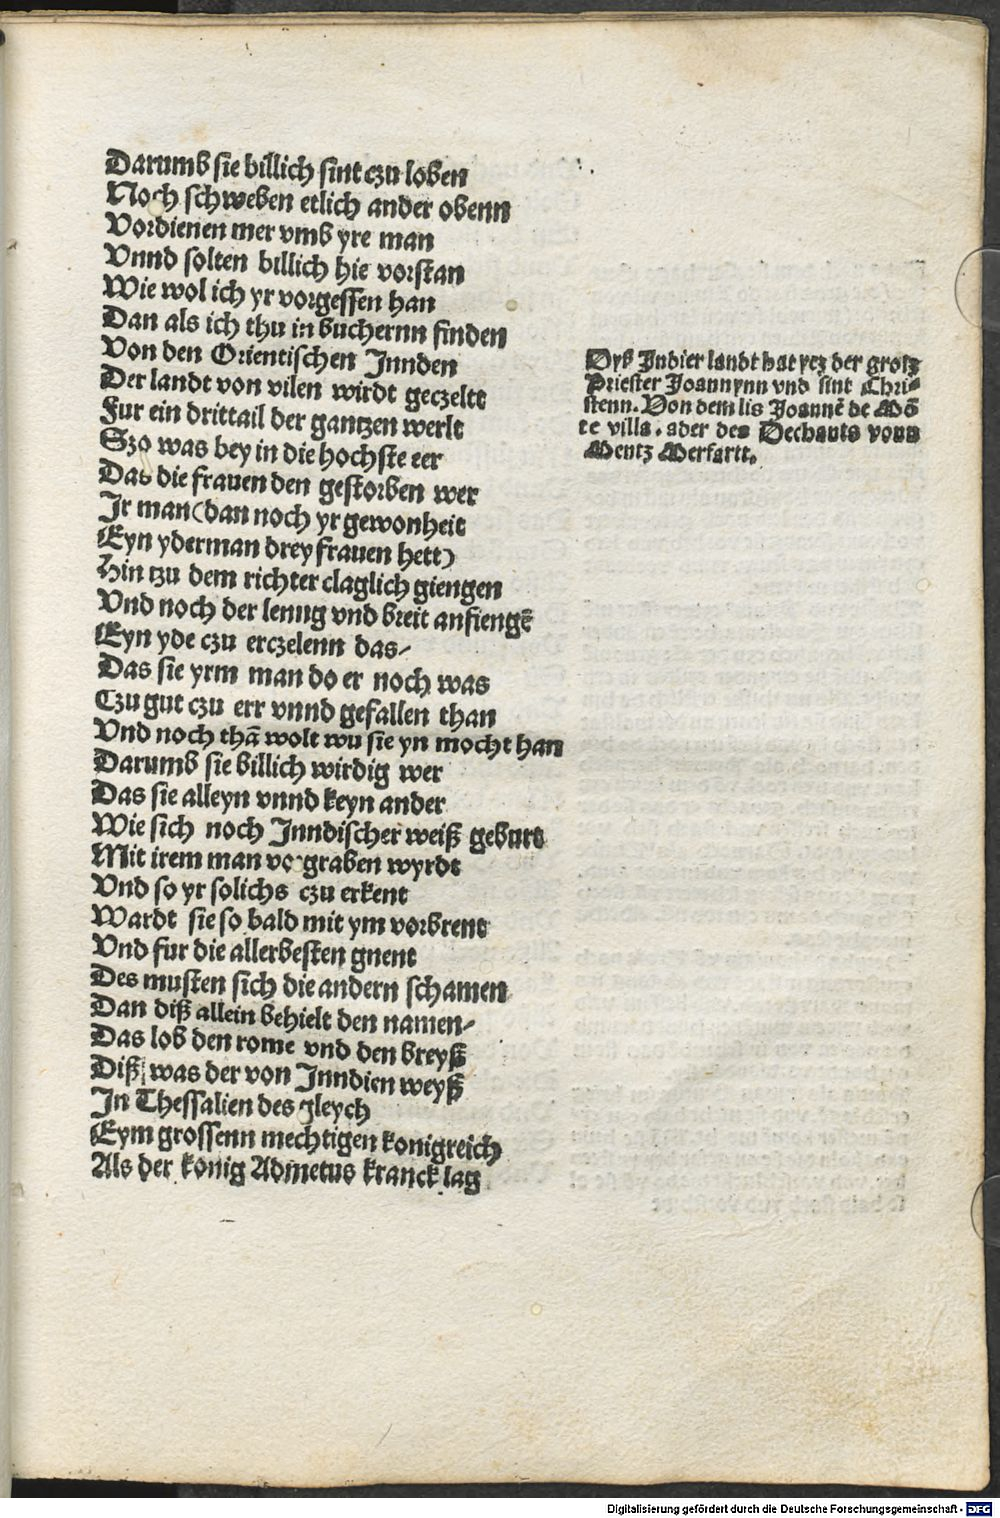 Darumb sie billich sint czu loben
Noch schweben etlich ander obenn
Vordienen mer vmb yre man
Vnnd solten billich hie vorstan
Wie wol ich yr vorgessen han
Dan als ich thu in buchernn finden
Von den Orientischen Jnnden
Der landt von vilen wirdt geczelt
Fur ein drittail der gantzen werlt
Szo was bey in die hochste eer
Das die frauen den gestorben wer
Jr man (dan noch yr gewonheit
Eyn yderman drey frauen hett)
Hin tzu dem richter claglich giengen
Vnd noch der lenng vnd breit anfiengē
Eyn yde czu erczelenn das/
Das sie yrm man do er noch was
Czu gut czu err vnnd gefallen than
Vnd noch thā wolt wu sie yn mocht han
Darumb sie billich wirdig wer
Das sie alleyn vnnd keyn ander
Wie sich noch Jnndischer weiß geburt
Mit irem man vorgraben wyrdt
Vnd so yr solichs czu erkent
Wardt sie so bald mit ym vorbrent
Vnd fur die allerbesten gnent
Des musten sich die andern schamen
Dan diß allein behielt den namen/
Das lob den rome vnd den breyß
Diß was der von Jnndien weyß
Jn Thessalien des gleych
Eym grossenn mechtigen konigreich
Als der konig Admetus kranck lag
Dyß Jndier landt hat ytz der groß
Priester Joannynn vnd sint Chri⸗
stenn. Von dem lis Joannē de Mō
te villa. ader des Dechants vonn
Mentz Merfartt.
Digitalisierung gefördert durch die Deutsche Forschungsgemeinschaft - DFG